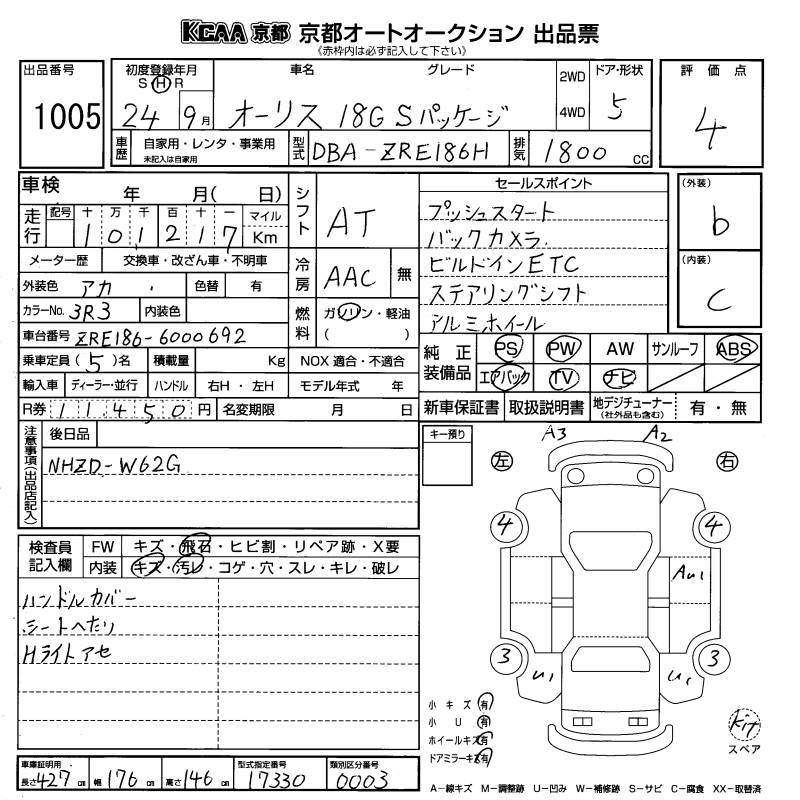 KCAA 京都 京都オートオークション 出品票
《赤枠内は必ず記入して下さい》
出品番号
1005
初度登録年月
S H R
24 9月
車名 グレード
オーリス 18G Sパッケージ
2WD
4WD
ドア・形状
5
評価点
4
車歴 自家用・レンタ・事業用
未記入は自家用
型式 DBA-ZRE186H
排気 1800 cc
車検 年 月( 日)
走行 記号 十 万 千 百 十 一 マイル
101217 Km
メーター歴 交換車・改ざん車・不明車
外装色 アカ 色替 有
カラーNo. 3R3 内装色
車台番号 ZRE186-6000692
乗車定員(5)名 積載量 Kg NOX 適合・不適合
輸入車 ディーラー・並行 ハンドル 右H・左H モデル年式 年
R券 11450円 名変期限 月 日
シフト AT
冷房 AAC 無
燃料 ガソリン・軽油
( )
セールスポイント
プッシュスタート
バックカメラ
ビルドインETC
ステアリングシフト
アルミホイール
(外装)
b
(内装)
c
純正装備品 PS PW AW サンルーフ ABS
エアバック TV ナビ
新車保証書 取扱説明書 地デジチューナー(社外品も含む) 有・無
注意事項(出品店記入)
後日品
NHZD-W62G
キー預り
A3 A2
左 右
4 4
Au1
3 3
U1 U1
検査員記入欄 FW キズ・飛石・ヒビ割・リペア跡・X要
内装 キズ・汚レ・コゲ・穴・スレ・キレ・破レ
ハンドルカバー
シートへたり
Hライトアセ
小キズ 有
小U 有
ホイールキズ 有
ドアミラーキズ 有
Kit
スペア
車庫証明用
長さ427cm 幅176cm 高さ146cm
型式指定番号 17330
類別区分番号 0003
A-線キズ M-調整跡 U-凹み W-補修跡 S-サビ C-腐食 XX-取替済